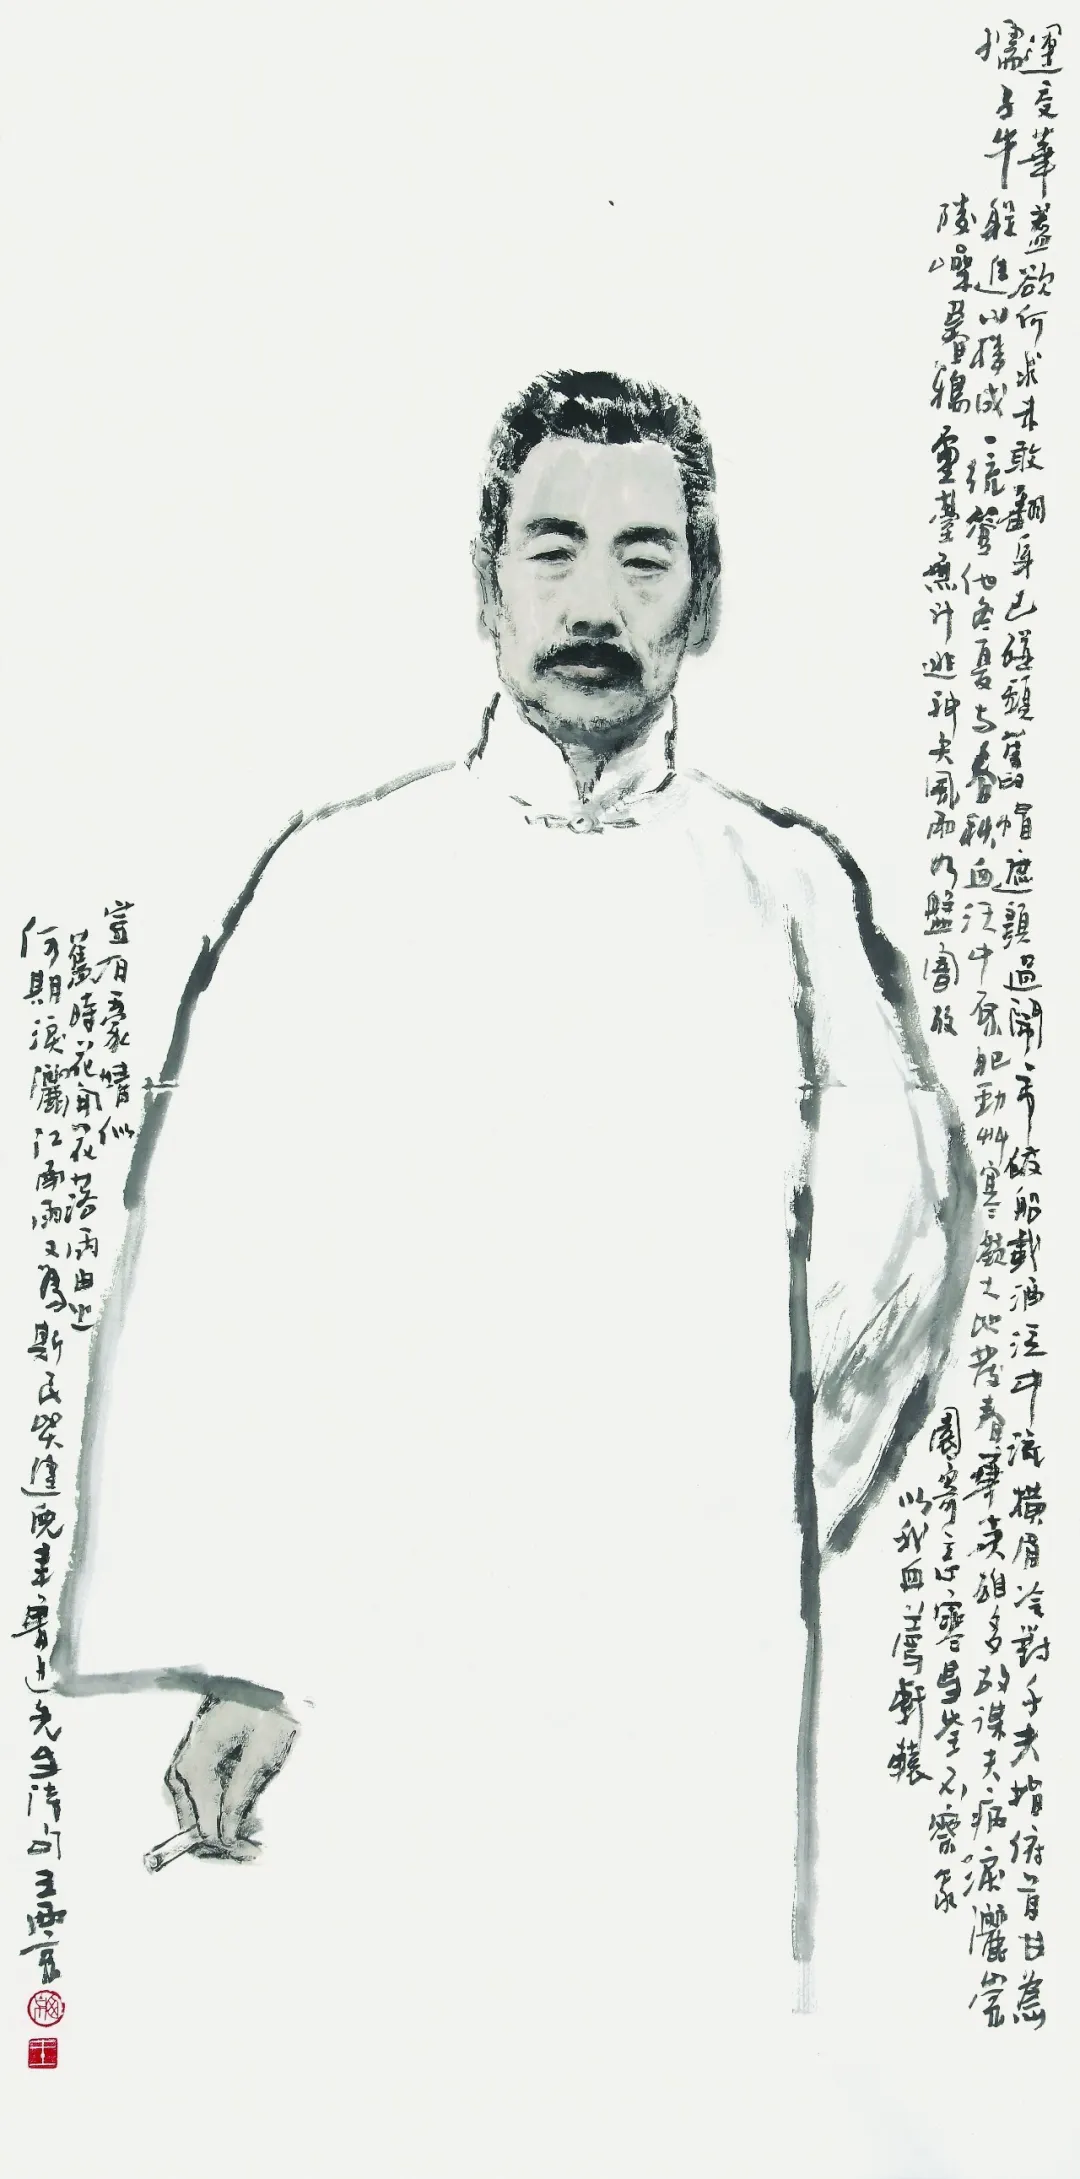 運交華蓋欲何求未敢翻身已碰頭舊帽遮顏過鬧市破船載酒泛中流橫眉冷對千夫指俯首甘為
孺子牛躲進小樓成一統管他冬夏與春秋血沃中原肥勁艸寒凝大地發春華英雄多故謀夫病淚灑崇
陵噪暮鴉靈臺無計逃神矢風雨如磐闇故
園寄意寒星荃不察我
以我血薦軒轅
豈有豪情似
舊時花開花落兩由之
何期淚灑江南雨又為斯民哭健兒書魯迅先生詩句王西京
王